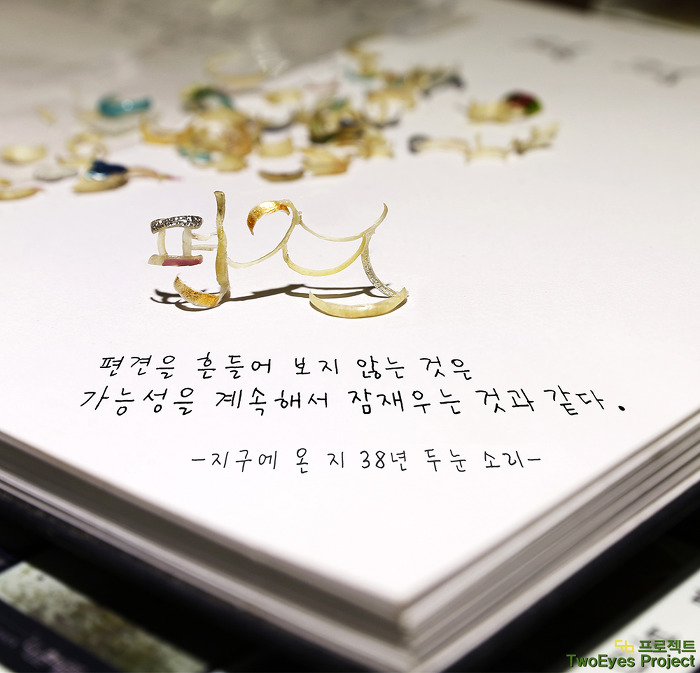 편견을 흔들어 보지 않는 것은
가능성을 계속해서 잠재우는 것과 같다.
-지구에 온 지 38년 두눈 소리-
프로젝트
TwoEyes Project